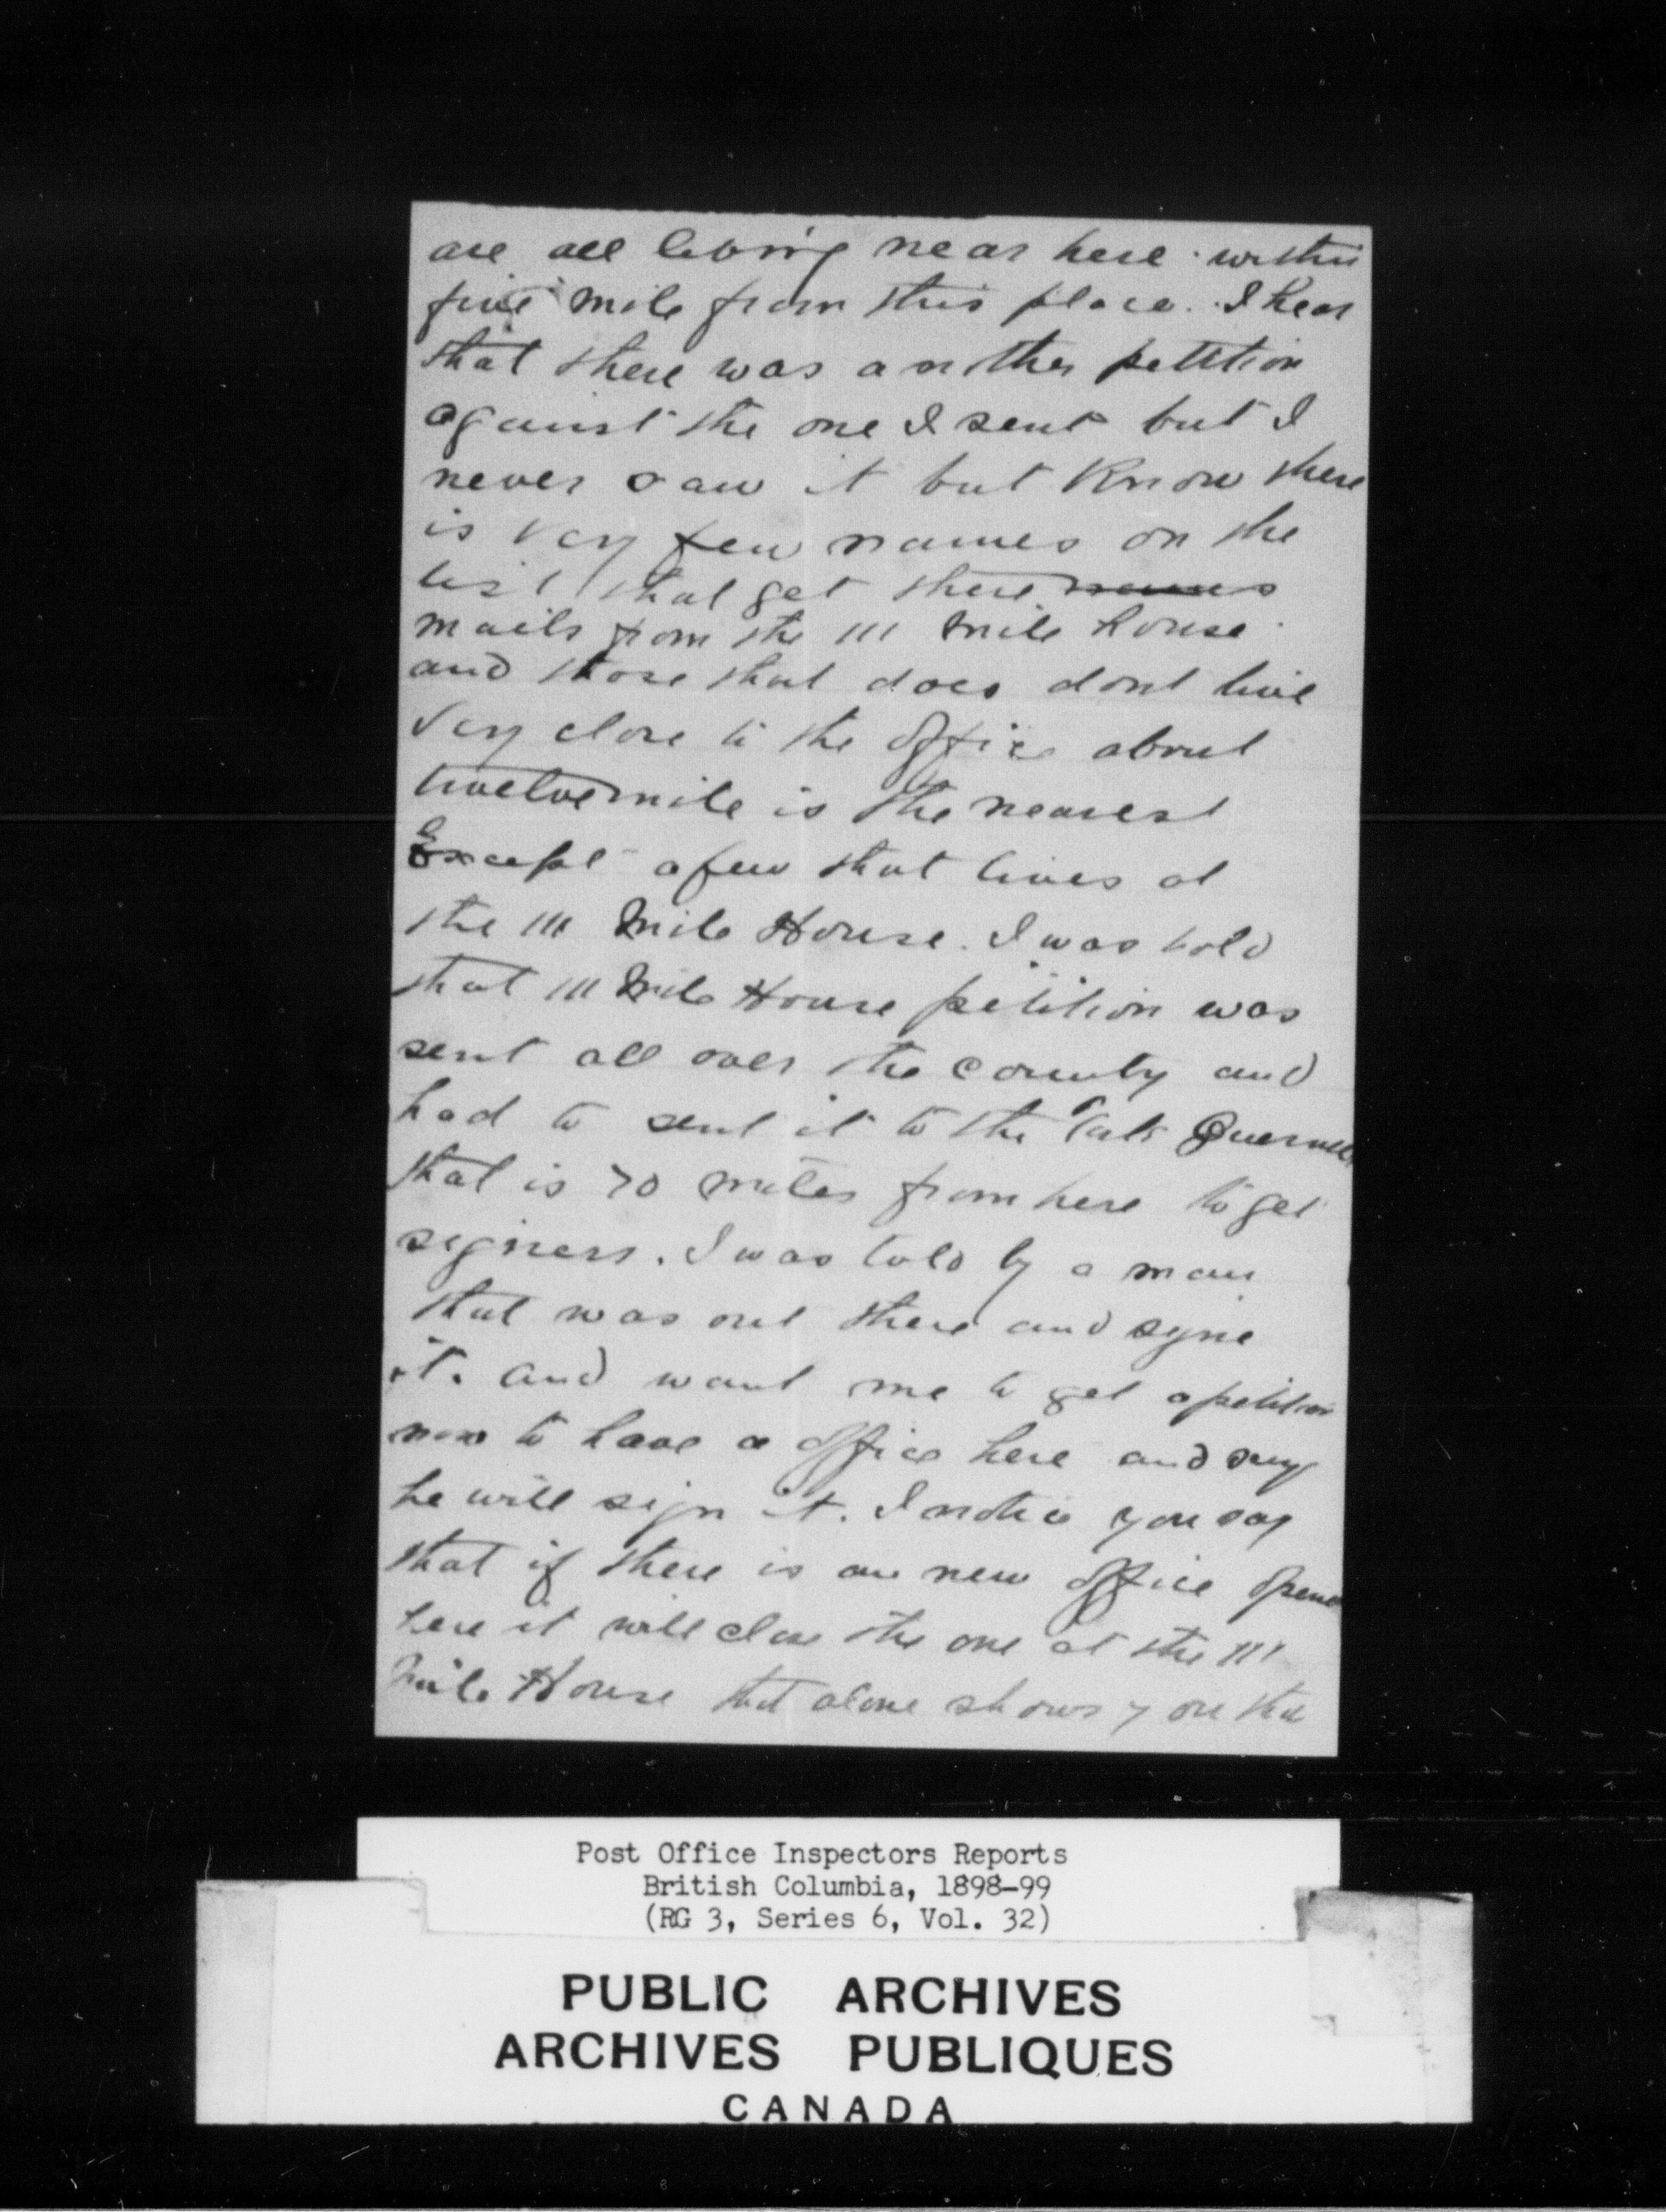 are all living near here within
five mile from this place. I hear
that there was another petition
against the one I sent but I
never saw it but Know there
is very few names on the
list that get there names
mails from the 111 mile house.
and those that does dont live
very close to the office about
twelve mile is the nearest
Except a few that lives at
the 111 Mile House. I was told
that 111 Mile House petition was
sent all over the county and
had to sent it to the
that is 70 miles from here to get
signers. I was told by a man
that was out there and signe
it. and want me to get a petition
now to have a office here and says
he will sign it. I notice you say
that if there is an new office opene
here it will close the one at the 111
Mile House that alone shows you that
Post Office Inspectors Reports
British Columbia, 1898-99
(RG 3, Series 6, Vol. 32)
PUBLIC ARCHIVES
ARCHIVES PUBLIQUES
CANADA